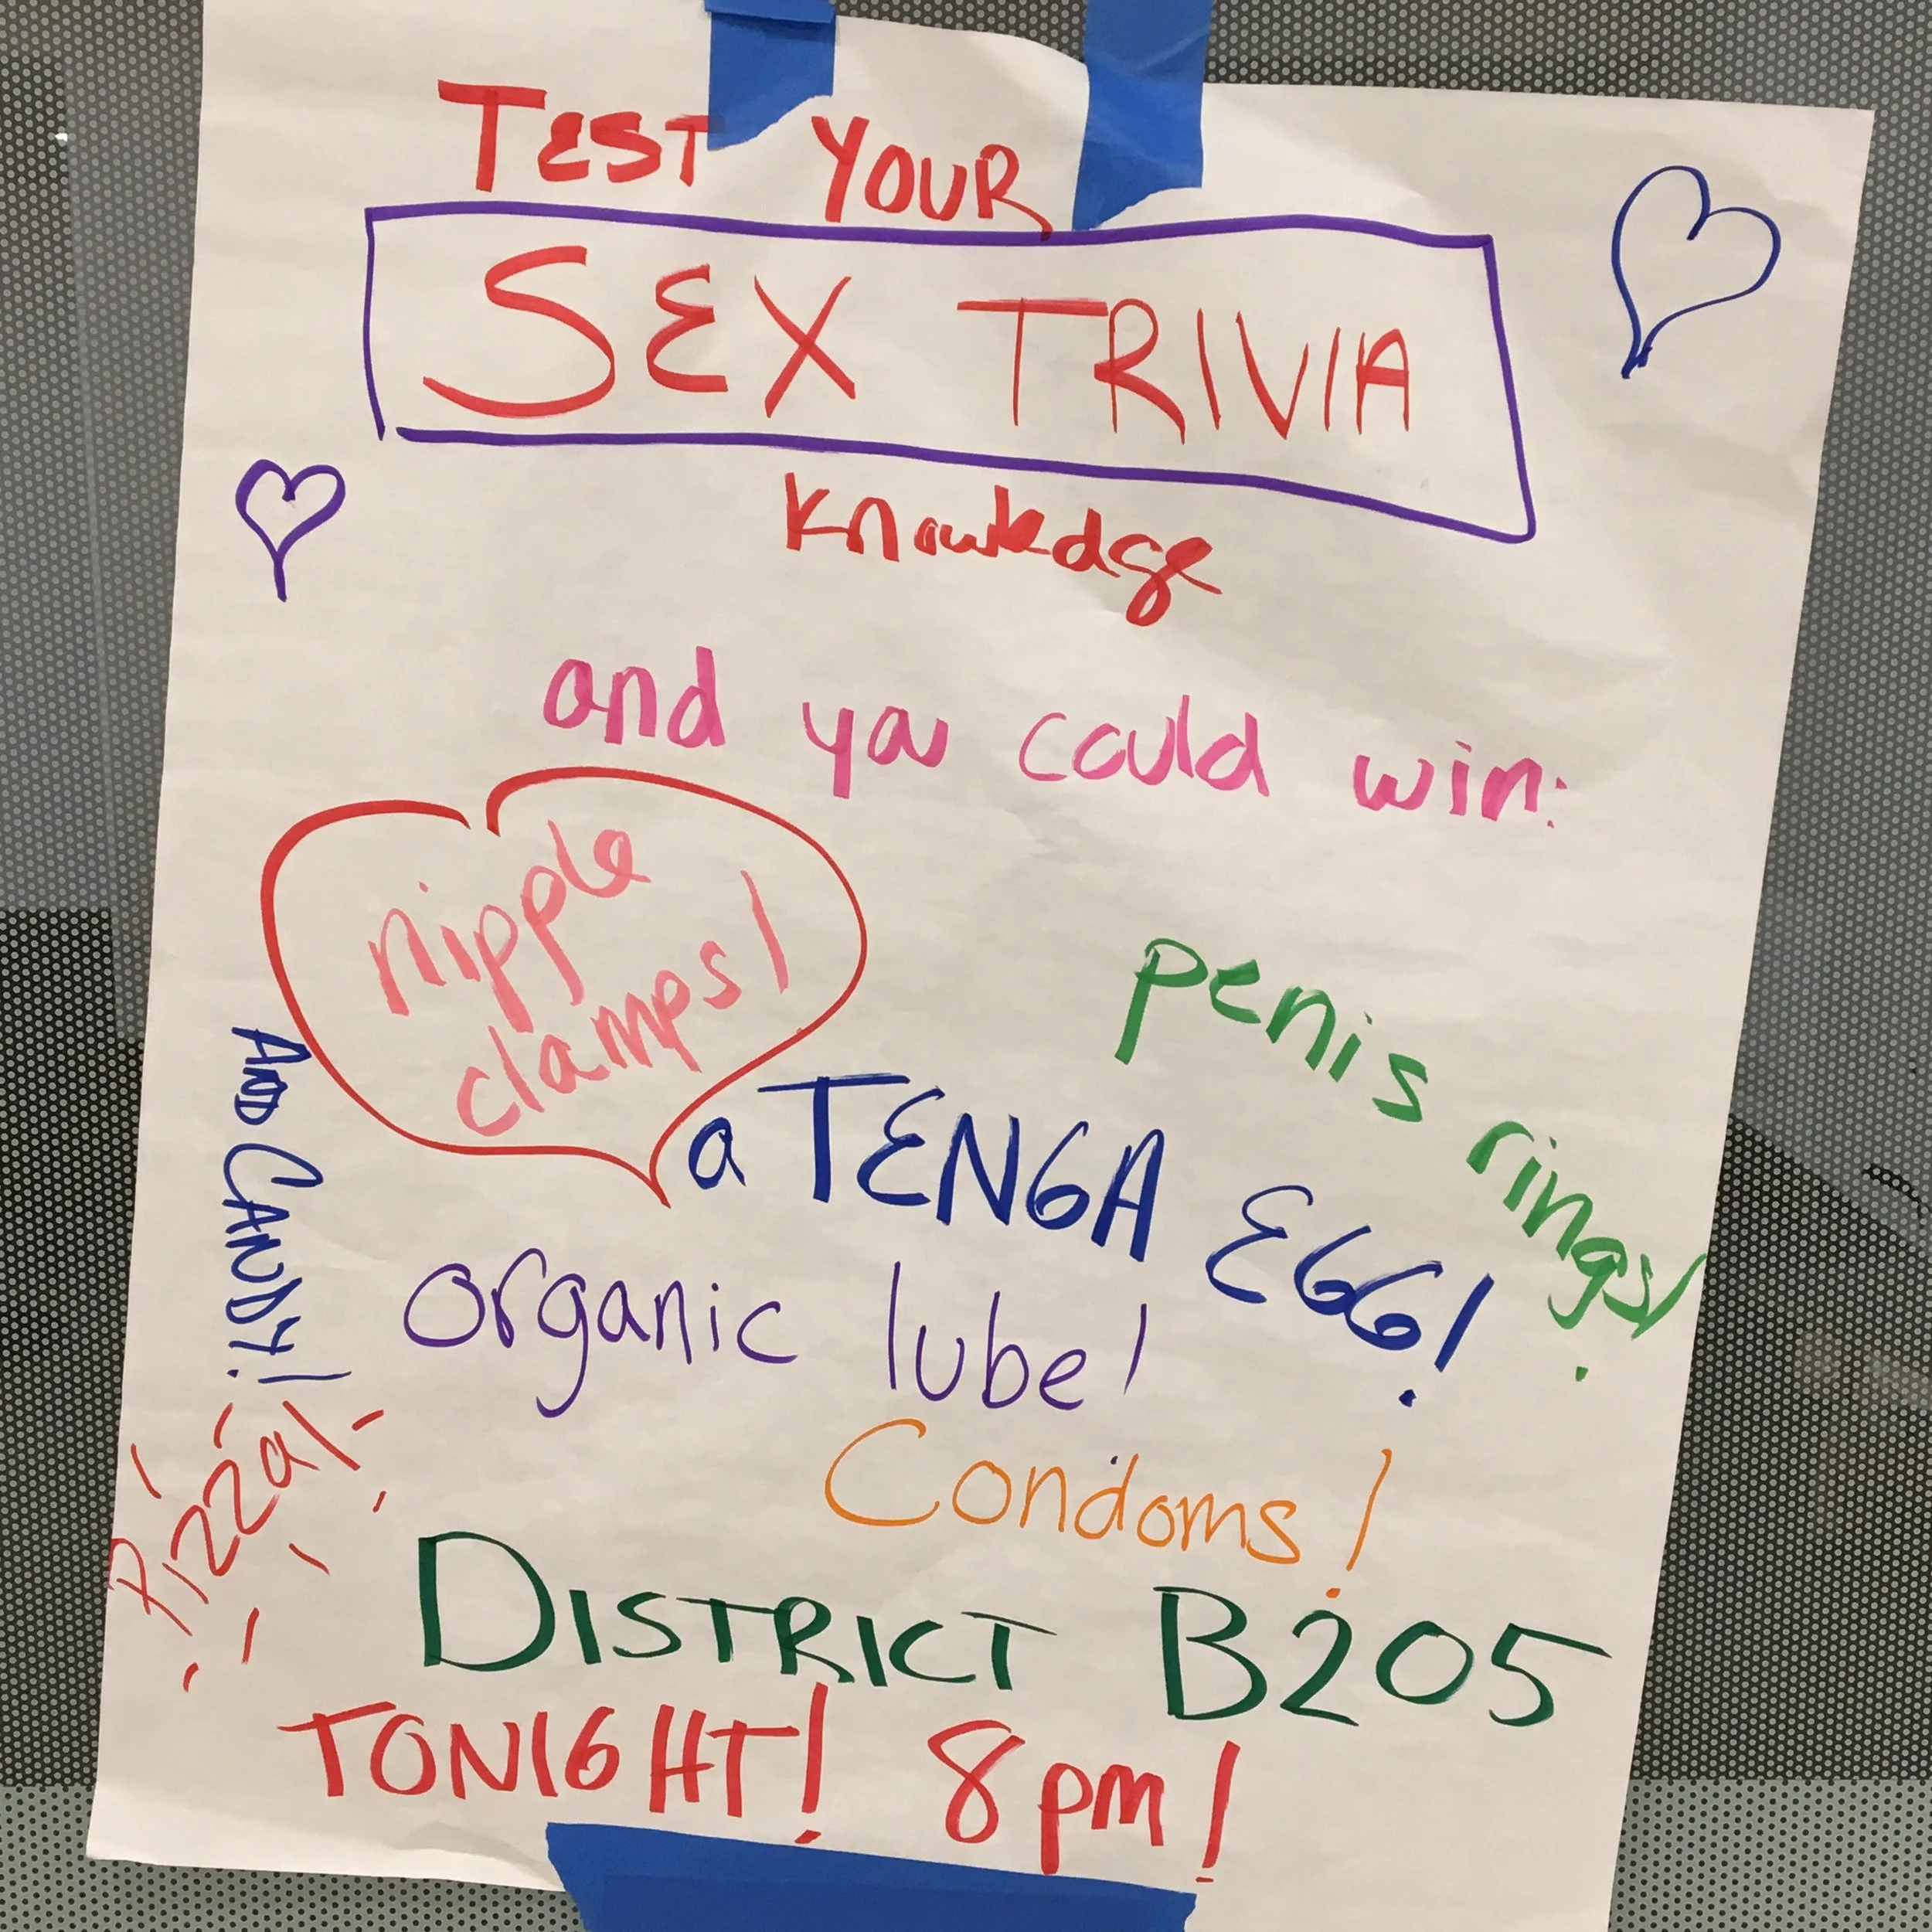 TEST YOUR
SEX TRIVIA
knowledge
and you could win:
nipple
clamps!
penis rings!
a TENGA EGG!
organic lube!
AND CANDY!
Condoms!
Pizza!
DISTRICT B205
TONIGHT! 8pm!